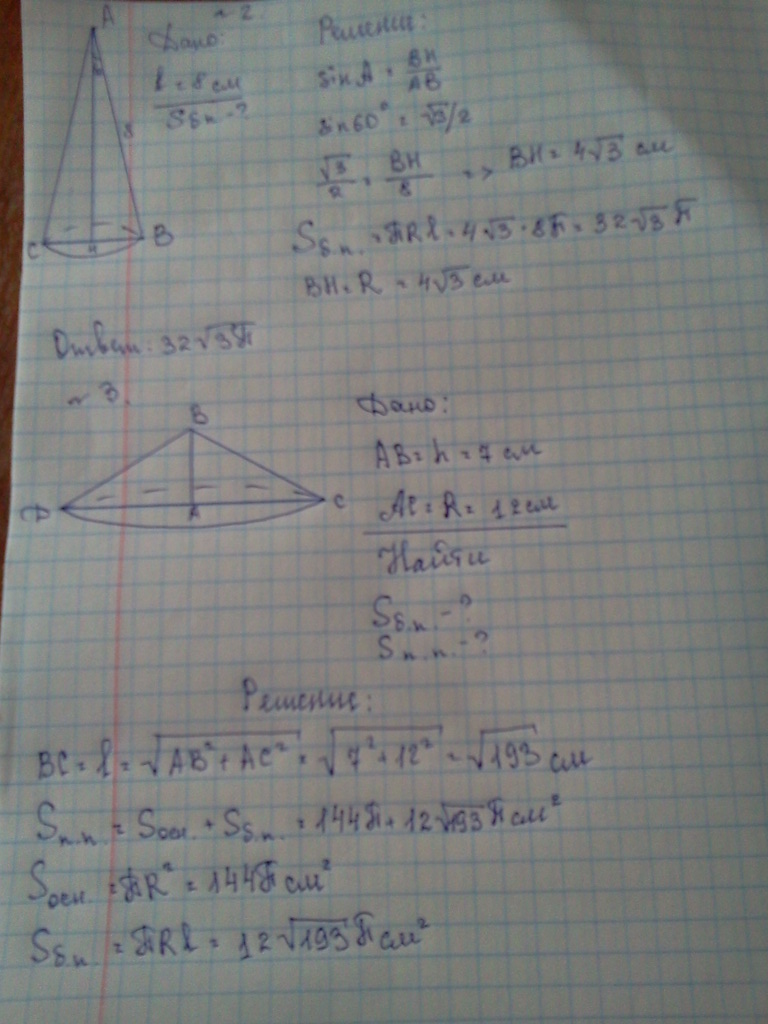 ~ 2.
A
Дано:
l = 8 см
Sб.п - ?
8
C
H
B
Решение:
sin A = BH/AB
sin 60° = √3/2
√3/2 = BH/8 => BH = 4√3 см
Sб.п. = πRl = 4√3 · 8π = 32√3 π
BH = R = 4√3 см
Ответ: 32√3π
~ 3.
B
D
A
C
Дано:
AB = h = 7 см
AC = R = 12 см
Найти
Sб.п. - ?
Sп.п. - ?
Решение:
BC = l = √AB² + AC² = √7² + 12² = √193 см
Sп.п. = Sосн. + Sб.п. = 144π + 12√193 π см²
Sосн. = πR² = 144π см²
Sб.п. = πRl = 12√193 π см²